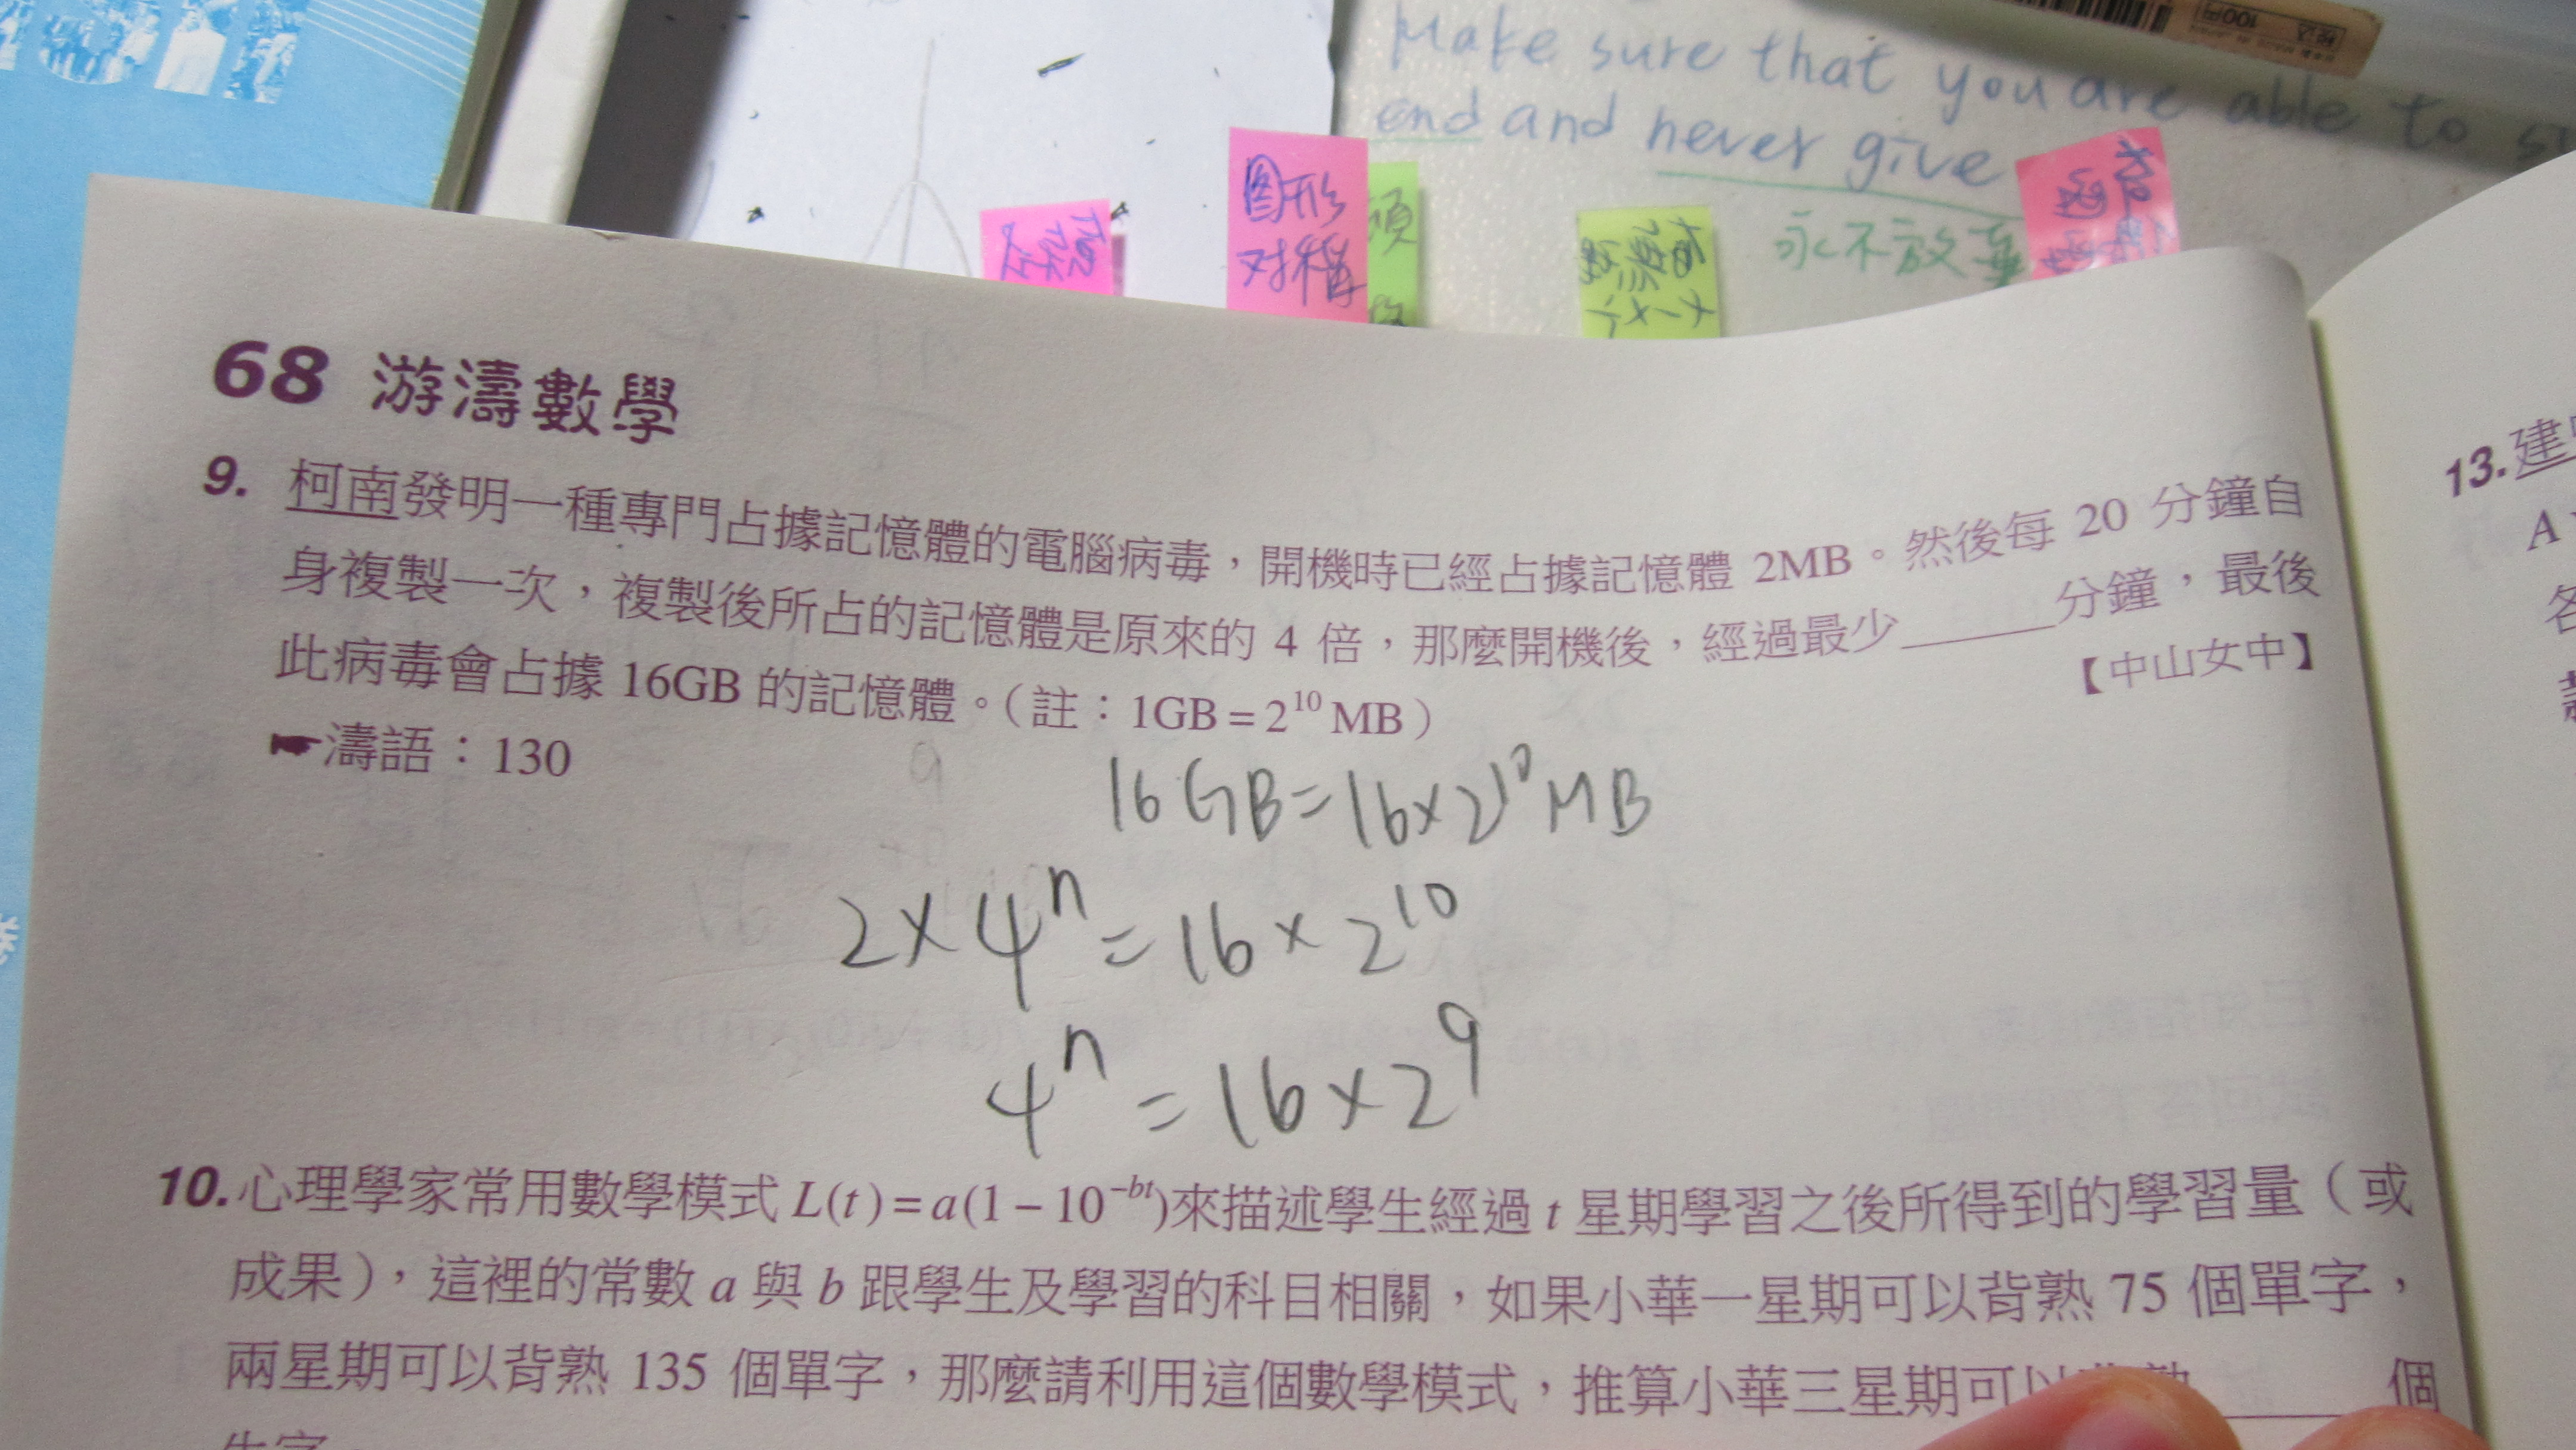 Make sure that you are able to
end and never give
永不放棄
图形
对稱
68 游濤數學
9. 柯南發明一種專門占據記憶體的電腦病毒，開機時已經占據記憶體 2MB。然後每 20 分鐘自
身複製一次，複製後所占的記憶體是原來的 4 倍，那麼開機後，經過最少______分鐘，最後
此病毒會占據 16GB 的記憶體。（註：1GB = 2^10 MB） 【中山女中】
☛濤語：130
16GB=16×2^10 MB
2×4^n=16×2^10
4^n=16×2^9
10. 心理學家常用數學模式 L(t)=a(1−10^−bt)來描述學生經過 t 星期學習之後所得到的學習量（或
成果），這裡的常數 a 與 b 跟學生及學習的科目相關，如果小華一星期可以背熟 75 個單字，
兩星期可以背熟 135 個單字，那麼請利用這個數學模式，推算小華三星期可以背熟______個
13. 建
A
各